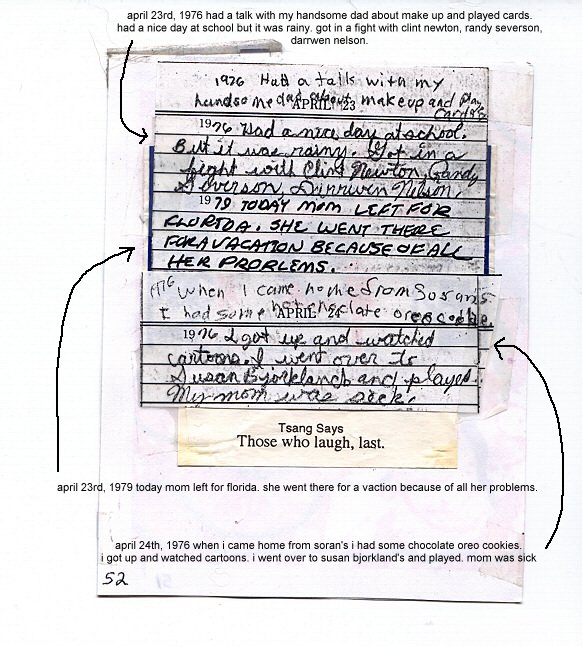 april 23rd, 1976 had a talk with my handsome dad about make up and played cards.
had a nice day at school but it was rainy. got in a fight with clint newton, randy severson,
darrwen nelson.
1976 Had a talk with my
handsome dad about makeup and play
cards
APRIL 23
1976 Had a nice day at school.
But it was rainy. Got in a
fight with Clint Newton, Randy
Severson, Darrwen Nelson.
1979 TODAY MOM LEFT FOR
FLORIDA. SHE WENT THERE
FOR A VACATION BECAUSE OF ALL
HER PROBLEMS.
1976 When I came home from Soran's
I had some choclate oreo cookie.
APRIL 24
1976 I got up and watched
cartoons. I went over to
Susan Bjorkland's and played.
My mom was sick.
Tsang Says
Those who laugh, last.
april 23rd, 1979 today mom left for florida. she went there for a vaction because of all her problems.
april 24th, 1976 when i came home from soran's i had some chocolate oreo cookies.
i got up and watched cartoons. i went over to susan bjorkland's and played. mom was sick
52